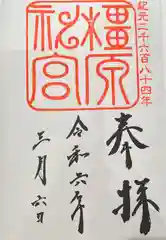 紀元二千六百八十四年
奉拝
橿原神宮
令和六年
三月六日